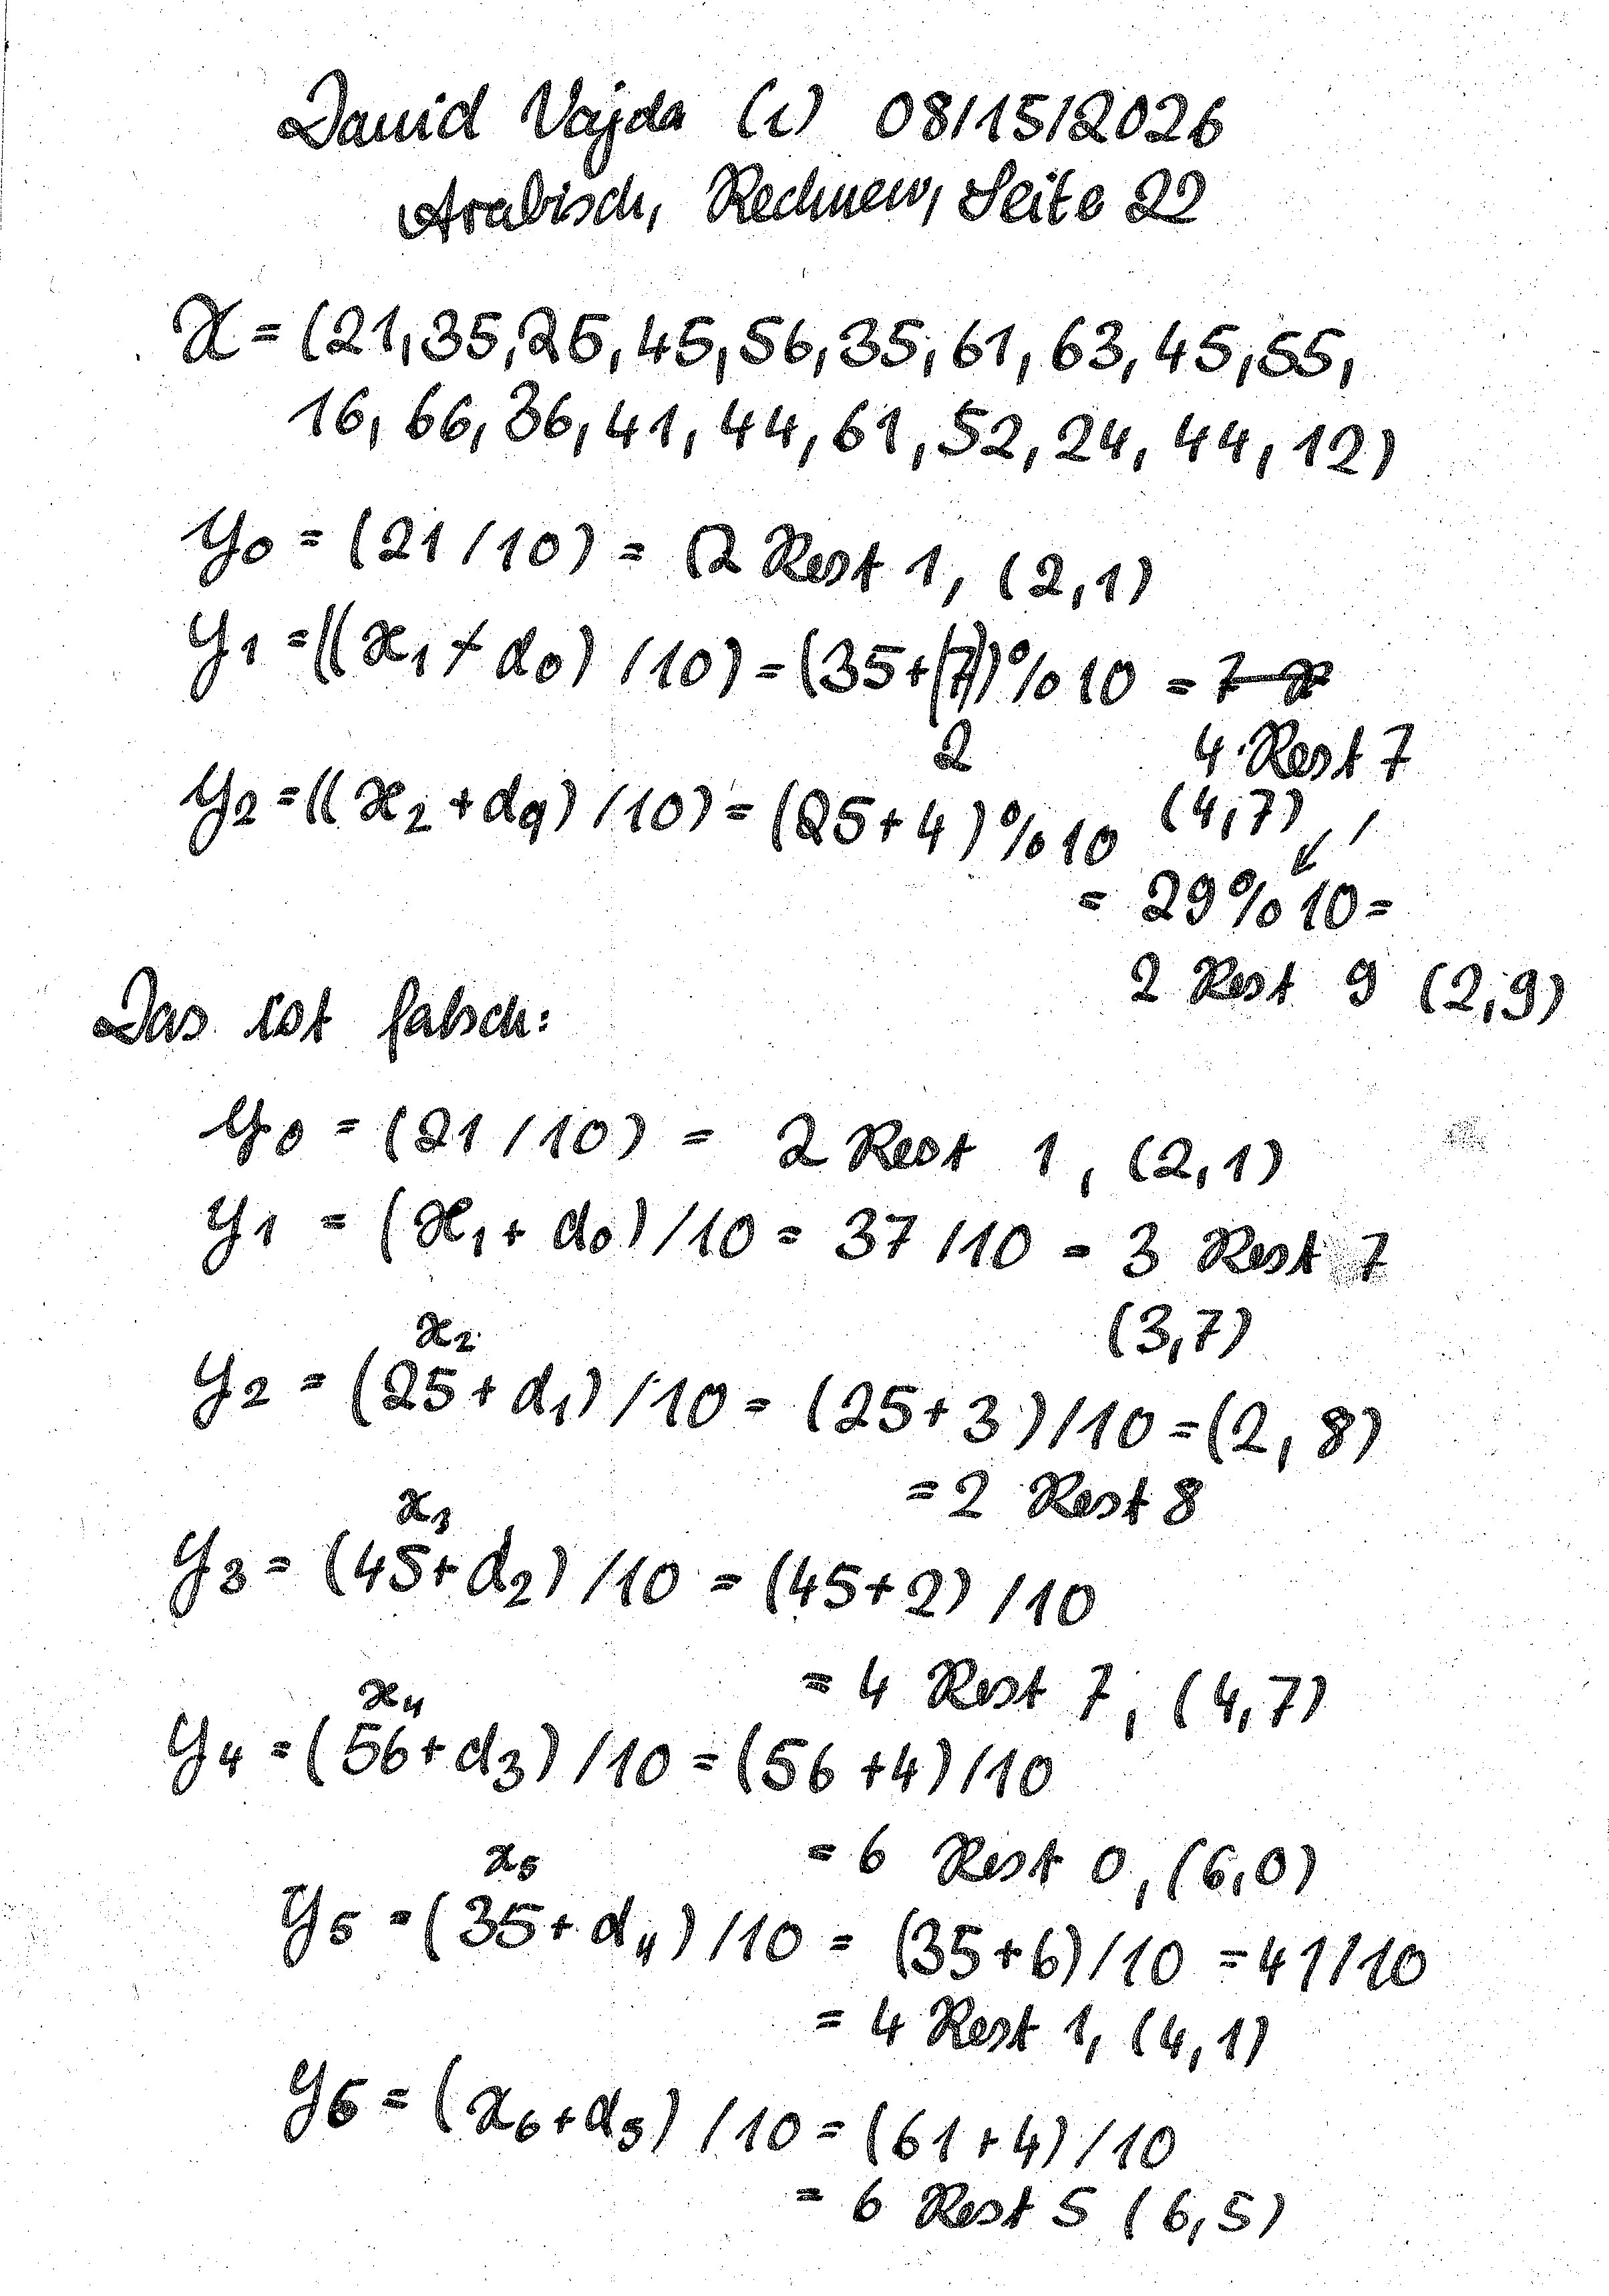 David Vajda (c) 08/15/2026
Arabisch, Rechnen, Seite 22
x = (21, 35, 25, 45, 56, 35, 61, 63, 45, 55,
16, 66, 36, 41, 44, 61, 52, 24, 44, 12)
y0 = (21 / 10) = (2 Rest 1, (2,1)
y1 = ((x1 + d0) / 10) = (35+(7)) % 10 = 7
2 4 Rest 7
(4,7)
y2 = ((x2 + d9) / 10) = (25+4) % 10
= 29 % 10 =
2 Rest 9 (2,9)
Das ist falsch:
y0 = (21 / 10) = 2 Rest 1, (2,1)
y1 = (x1 + d0) / 10 = 37 / 10 = 3 Rest 7
(3,7)
x2
y2 = (25 + d1) / 10 = (25+3) / 10 = (2, 8)
= 2 Rest 8
x3
y3 = (45 + d2) / 10 = (45+2) / 10
= 4 Rest 7, (4,7)
x4
y4 = (56 + d3) / 10 = (56 + 4) / 10
= 6 Rest 0, (6,0)
x5
y5 = (35 + d4) / 10 = (35+6) / 10 = 41 / 10
= 4 Rest 1, (4,1)
y6 = (x6 + d5) / 10 = (61 + 4) / 10
= 6 Rest 5 (6,5)